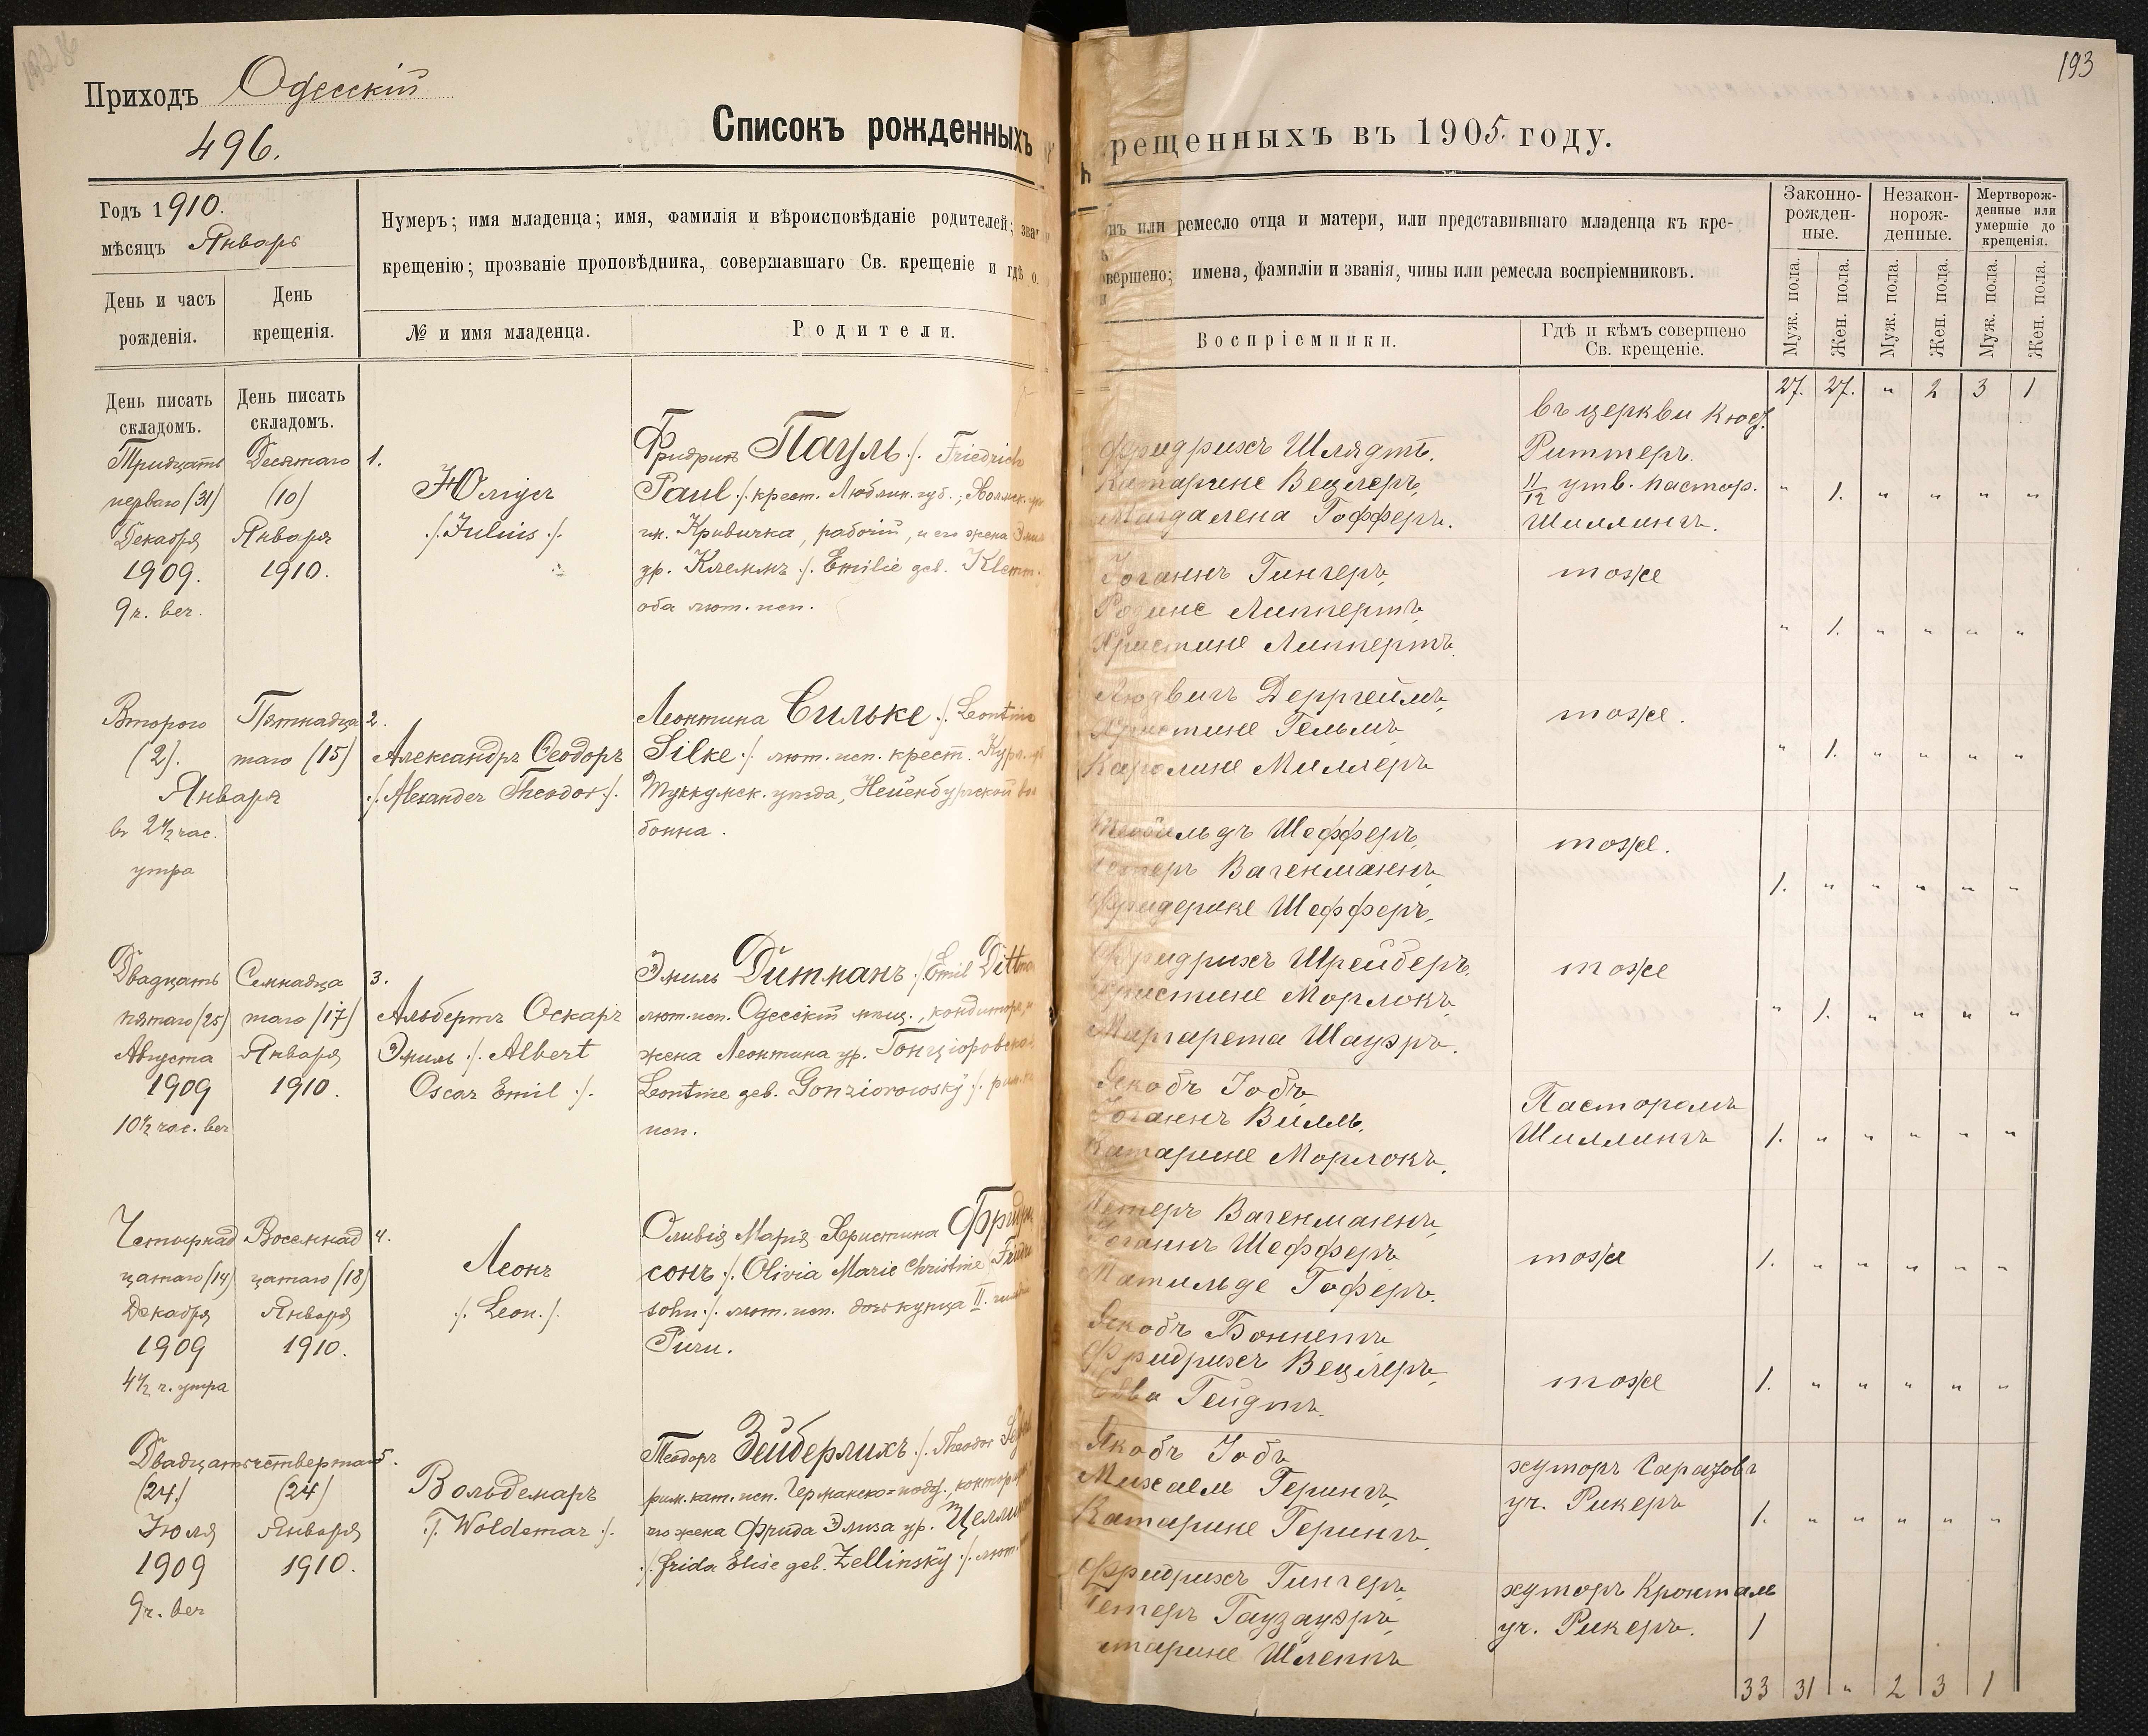 Приходъ Одесскій
496.
Списокъ рожденныхъ
Годъ 1910.
мѣсяцъ Январь
Нумеръ; имя младенца; имя, фамилія и вѣроисповѣданіе родителей;
крещенію; прозваніе проповѣдника, совершавшаго Св. крещеніе и гдѣ
День и часъ
рожденія.
День
крещенія.
№ и имя младенца.
Родители.
День писать
складомъ.
День писать
складомъ.
Тридцать
перваго (31)
Декабря
1909.
9 ч. веч.
Десятаго
(10)
Января
1910.
1.
Юліусъ
./. Julius ./.
Фридрихъ Пауль ./. Friedrich
Paul ./. крест. Люблин. губ.,
гм. Кривичка, рабочій, и его жена
ур. Клеммъ ./. Emilie geb. Klemm
оба лют. исп.
Второго
(2).
Января
въ 2½ час.
утра
Пятнадца
таго (15)
2.
Александръ Ѳеодоръ
./. Alexander Theodor ./.
Леонтина Сильке ./. Leontine
Silke ./. лют. исп. крест.
Туккумск. уѣзда, Нейенбургской
бонна.
Двадцать
пятаго (25)
Августа
1909
10½ час. веч
Семнадца
таго (17)
Января
1910.
3.
Альбертъ Оскаръ
Эмиль ./. Albert
Oscar Emil ./.
Эмиль Дитманъ ./. Emil
лют. исп. Одесскій мѣщ., кондитеръ,
жена Леонтина ур.
Leontine geb. Gonziorowsky ./.
исп.
Четырнад
цатаго (14)
Декабря
1909
4½ ч. утра
Восемнад
цатаго (18)
Января
1910.
4.
Леонъ
./. Leon. ./.
Оливія Марія Христина
сонъ ./. Olivia Marie Christine
sohn ./. лют. исп. дочь купца II.
Риги.
Двадцать четвертаго 5.
(24)
Іюля
1909
9 ч. веч
(24)
Января
1910.
Вольдемаръ
./. Woldemar ./.
Теодоръ Зейберлихъ ./. Theodor
рим. кат. исп. Германско-подд.,
его жена Фрида Элиза ур.
./. Frida Elise geb. Zellinsky ./.
193
рещенныхъ въ 1905. году.
или ремесло отца и матери, или представившаго младенца къ кре-
вершено; имена, фамиліи и званія, чины или ремесла воспріемниковъ.
Воспріемники.
Гдѣ и кѣмъ совершено
Св. крещеніе.
Законно-
рожден-
ные.
Незакон-
норож-
денные.
Мертворож-
денные или
умершіе до
крещенія.
Муж. пола.
Жен. пола.
Муж. пола.
Жен. пола.
Муж. пола.
Жен. пола.
27. 27. " 2 3 1
Фридрихъ Шлядтъ.
Катарине Вецлеръ,
Магдалена Гофферъ.
въ церкви
Риттеръ.
11/12 утв. пастор.
Шиллингъ.
" 1. " " " "
Іоганнъ Гингеръ,
Розине Липпертъ,
Христине Липпертъ.
тоже
" 1. " " " "
Людвигъ Дергеймъ,
Христине Гельмъ,
Каролине Миллеръ
тоже.
" 1. " " " "
Шефферъ,
Петеръ Вагенманнъ,
Фридерике Шефферъ.
тоже.
1. " " " " "
Фридрихъ Шрейберъ.
Христине Морлокъ,
Маргарета Шауэръ.
тоже
" 1. " " " "
Якобъ Іобъ,
Іоганнъ Вилль,
Катарине Морлокъ.
Пасторомъ
Шиллингъ
1. " " " " "
Петеръ Вагенманнъ,
Іоганнъ Шефферъ,
Матильде Гоферъ.
тоже
1. " " " " "
Якобъ Боннетъ
Фридрихъ Вецлеръ,
Ева Гейдтъ.
тоже
1. " " " " "
Якобъ Іобъ
Михаель Герингъ,
Катарине Герингъ.
хуторъ Саразовъ
уч. Рикеръ
1. " " " " "
Фридрихъ Гингеръ,
Петеръ Гаузауэръ,
хуторъ Кронталь
уч. Рикеръ.
1
33 31 " 2 3 1